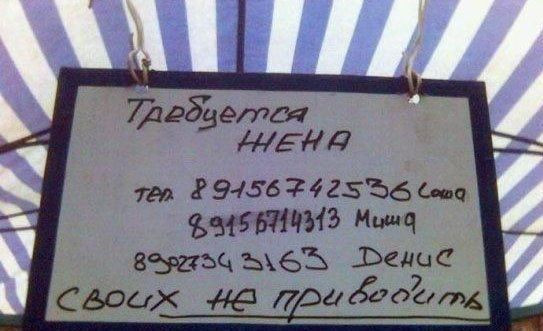 Требуется
ЖЕНА
тел. 89156742536 Саша
89156714313 Миша
89027343163 Денис
своих не приводить